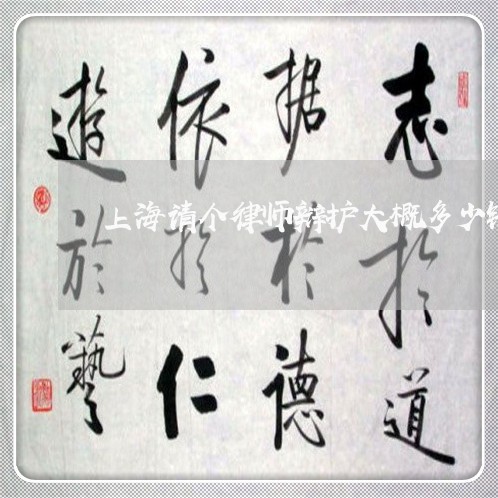 志於道
据於德
依於仁
遊於藝
上海请个律师辩护大概多少